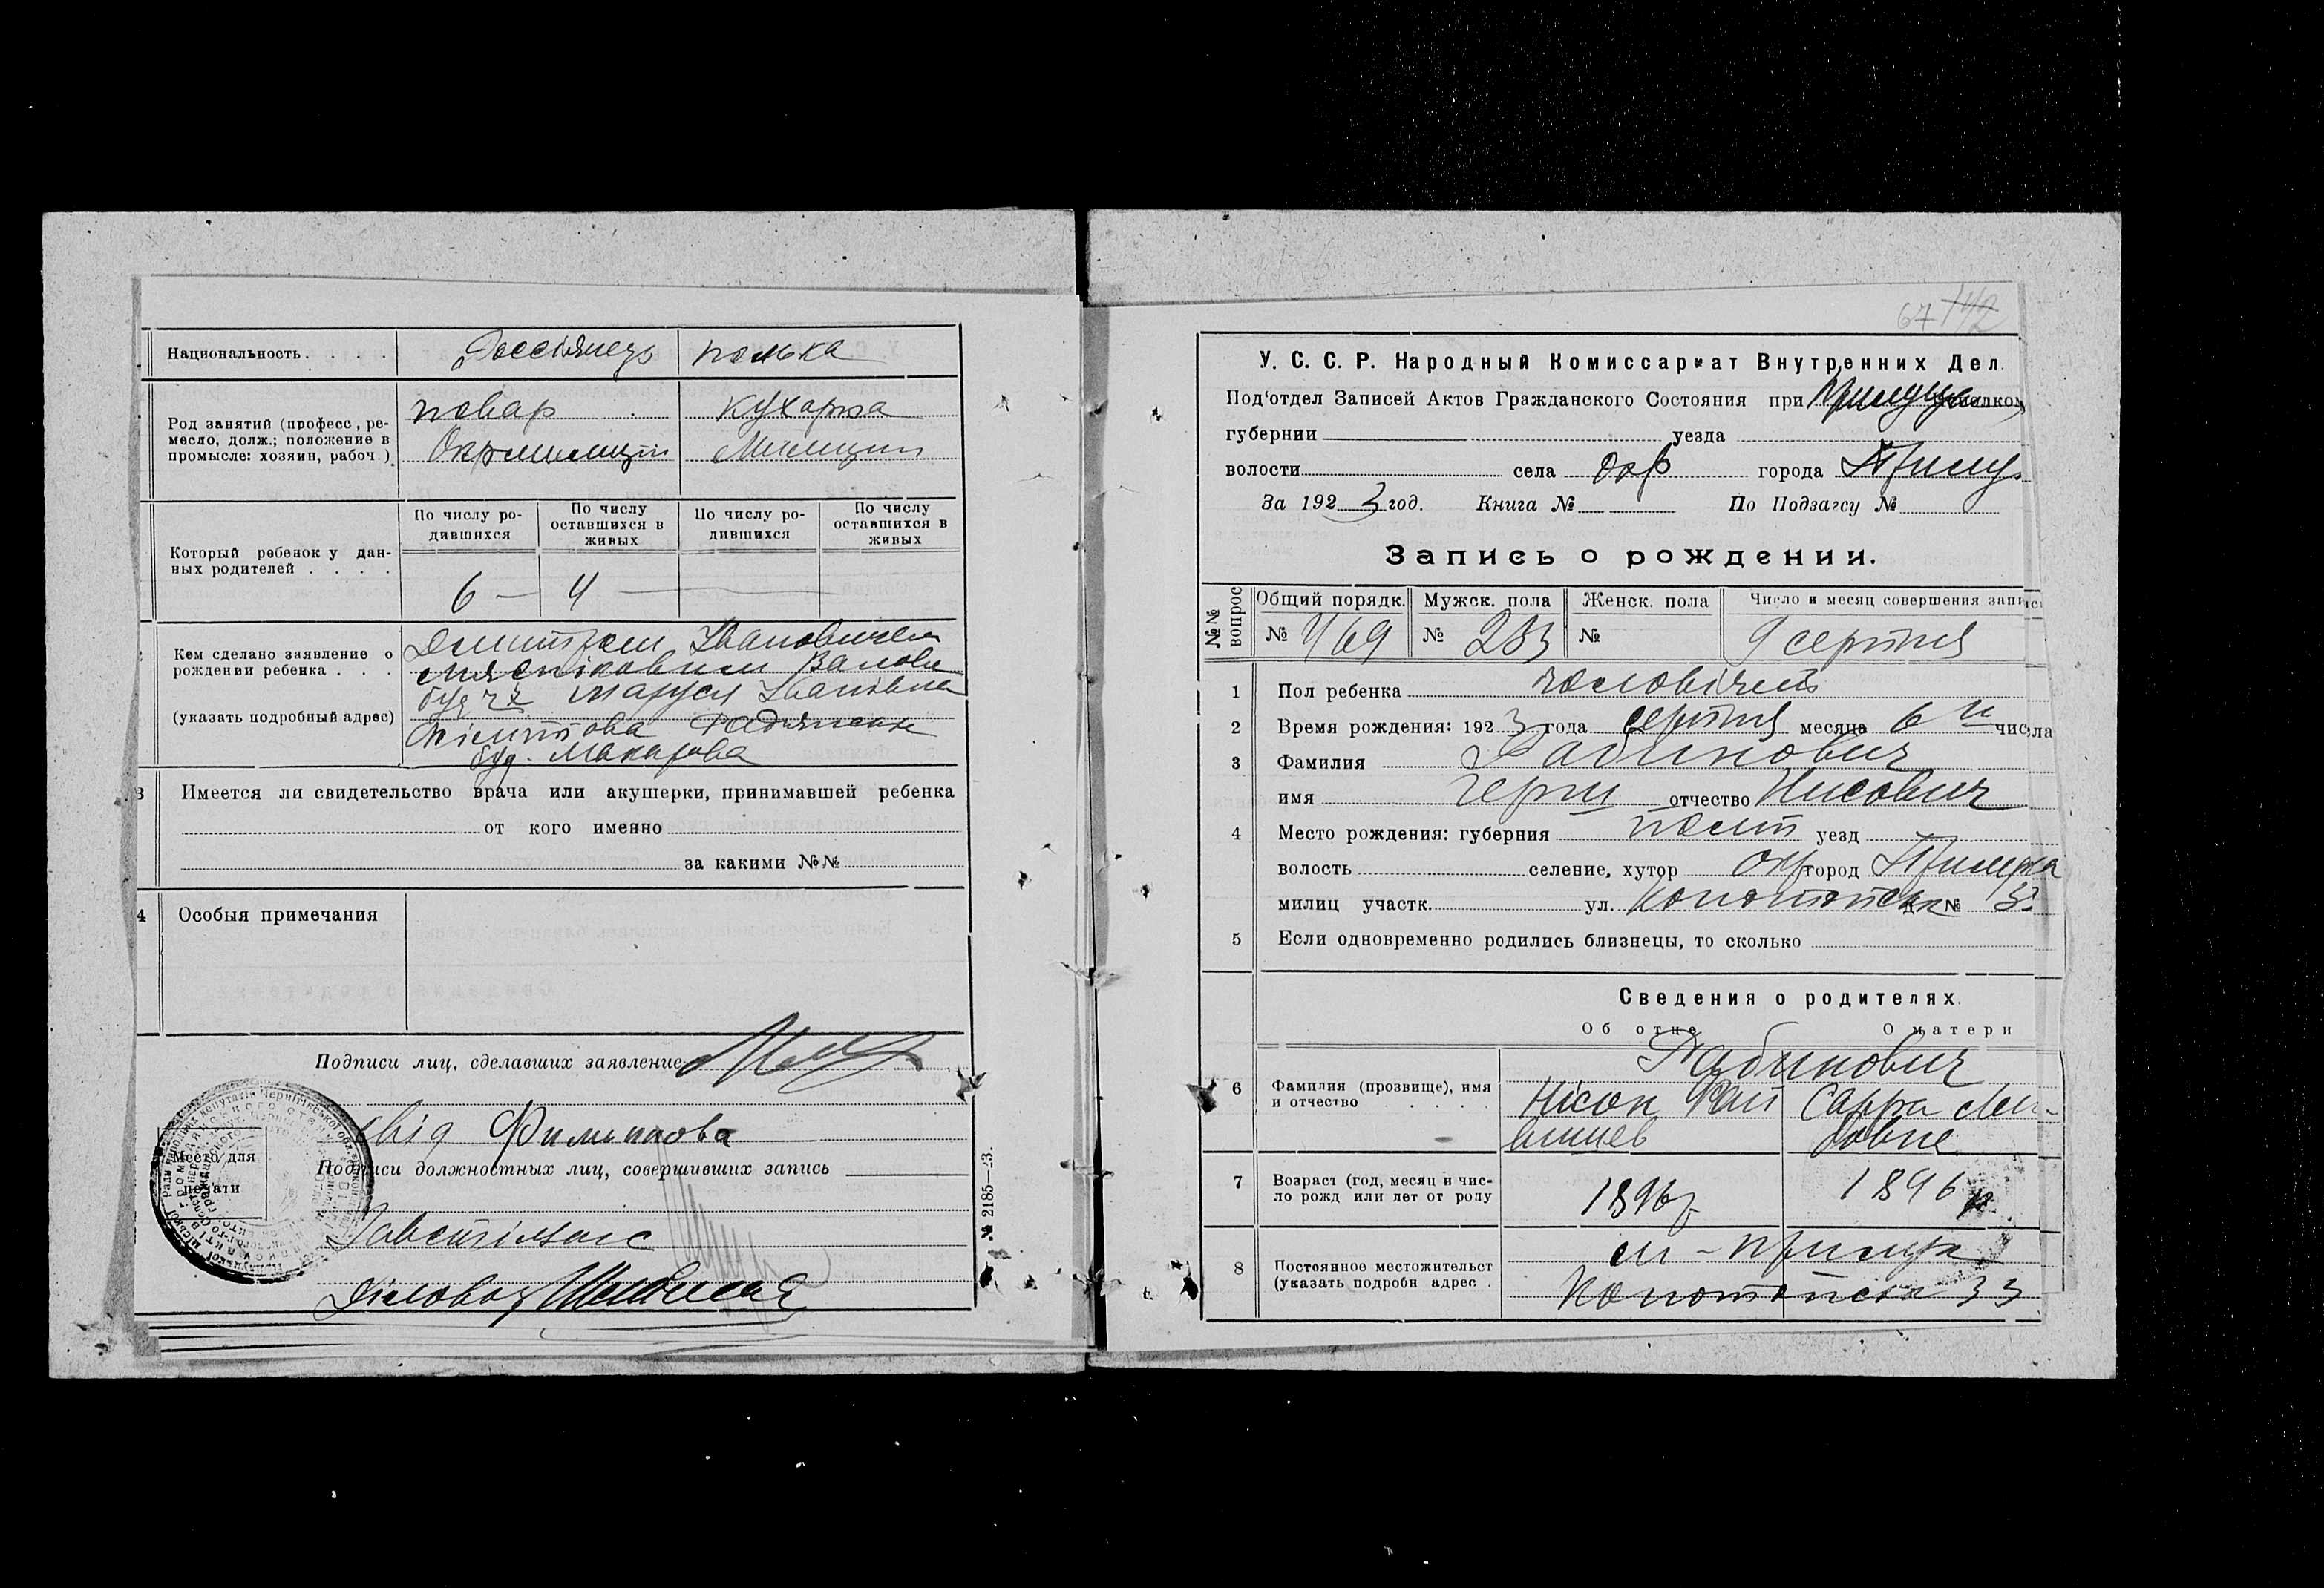 Национальность. . . . . Россіянець полька
Род занятий (професс, ре-
месло, долж.; положение в
промысле: хозяин, рабоч.)
повар кухарка
Окрмилиции Милиции
Который ребенок у дан-
ных родителей . . . .
По числу ро-
дившихся
По числу
оставшихся в
живых
По числу ро-
дившихся
По числу
оставшихся в
живых
6 — 4
Кем сделано заявление о
рождении ребенка . . .
(указать подробный адрес)
Ивановичем
буд. Макарова
3 Имеется ли свидетельство врача или акушерки, принимавшей ребенка
от кого именно
за какими №№
4 Особыя примечания
Подписи лиц, сделавших заявление
Филиппова
Подписи должностных лиц, совершивших запись
Место для
печати
Діловод
№ 2185—23.
67 142
У. С. С. Р. Народный Комиссариат Внутренних Дел.
Под'отдел Записей Актов Гражданского Состояния при
губернии уезда
волости села окр города Прилуц
За 1923 год. Книга № По Подзагсу №
Запись о рождении.
№№ вопрос
Общий порядк. Мужск. пола Женск. пола Число и месяц совершения записи
№ 469 № 233 № 9 серпня
1 Пол ребенка чоловічий
2 Время рождения: 1923 года серпня месяца 6 числа
3 Фамилия Рабинович
имя Герш отчество Нисович
4 Место рождения: губерния Полт уезд
волость селение, хутор окр город Прилука
милиц участк. ул. Конотопська №
5 Если одновременно родились близнецы, то сколько
Сведения о родителях.
Об отце О матери
Рабинович
6 Фамилия (прозвище), имя
и отчество . . . .
Нісон Сарра
7 Возраст (год, месяц и чис-
ло рожд или лет от роду
1896 р 1896 р
8 Постоянное местожительст
(указать подробн адрес .
м - Прилука
Конотопська 33